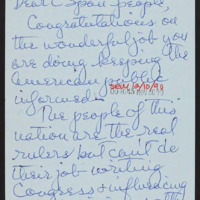 Dear C Span people,
Congratulations on
the wonderful job you
are doing keeping the
American public
informed.
The people of this
nation are the real
rulers but can't do
their job - writing
Congress & influencing